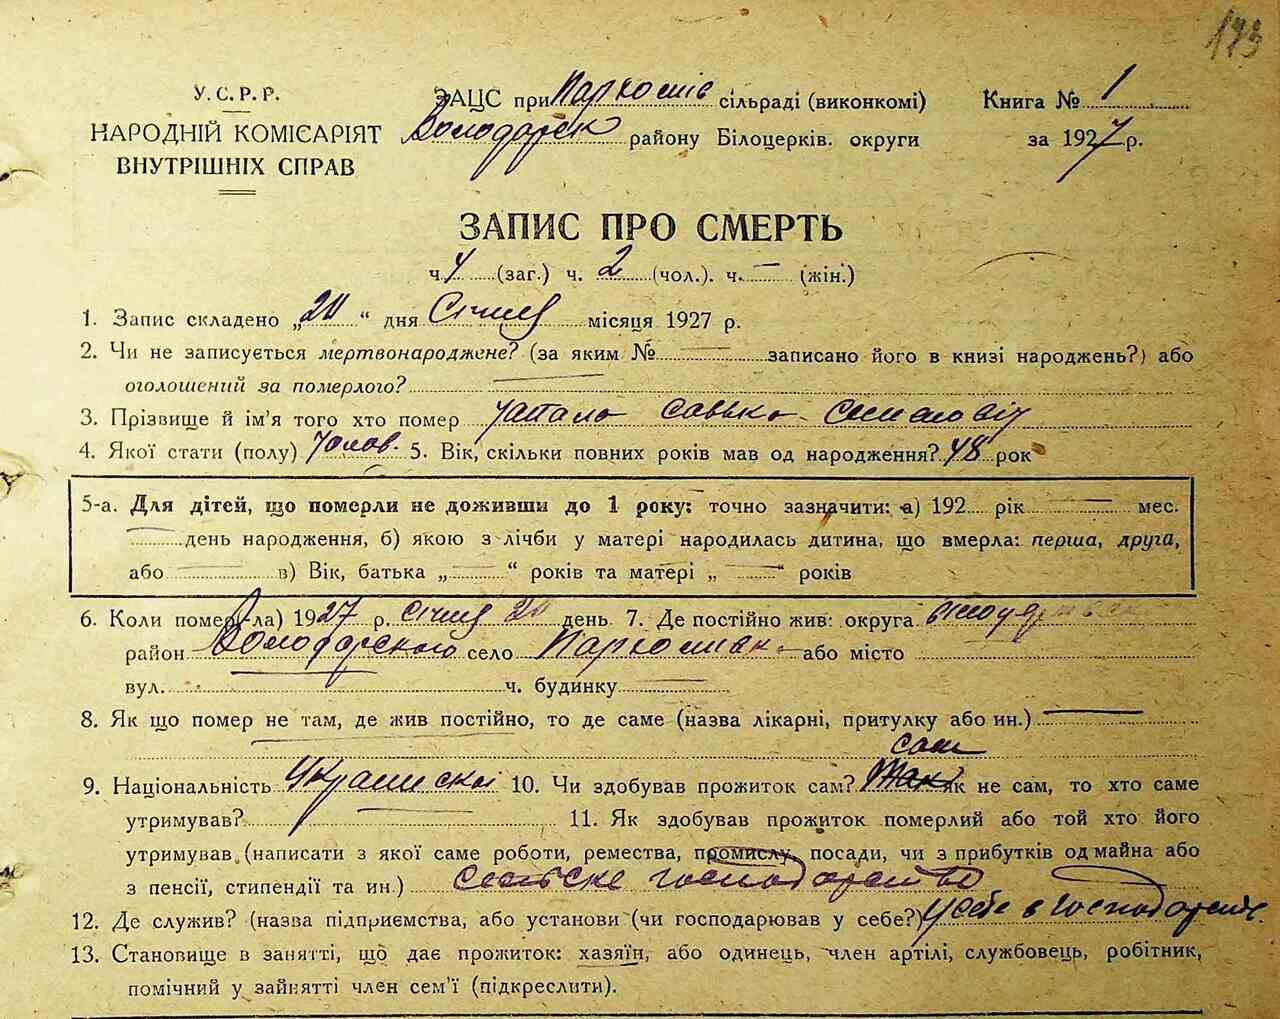 193
У.С.Р.Р.
НАРОДНІЙ КОМІСАРІЯТ
ВНУТРІШНІХ СПРАВ
ЗАЦС при Пархомів сільраді (виконкомі)
Володарськ району Білоцерків. округи
Книга № 1
за 1927 р.
ЗАПИС ПРО СМЕРТЬ
ч. 4 (заг.) ч. 2 (чол.). ч. — (жін.)
1. Запис складено „20“ дня Січня місяця 1927 р.
2. Чи не записується мертвонароджене? (за яким № — записано його в книзі народжень?) або
оголошений за померлого? —
3. Прізвище й ім'я того хто помер Савько
4. Якої стати (полу) Чолов. 5. Вік, скільки повних років мав од народження? 48 рок
5-а. Для дітей, що померли не доживши до 1 року: точно зазначити: а) 192.... рік — мес.
— день народження, б) якою з лічби у матері народилась дитина, що вмерла: перша, друга,
або — в) Вік, батька „—“ років та матері „—“ років
6. Коли помер(ла) 1927 р. січня 20 день 7. Де постійно жив: округа
район Володарского село Пархомівк або місто
вул. — ч. будинку —
8. Як що помер не там, де жив постійно, то де саме (назва лікарні, притулку або ин.) —
сам
9. Національність 10. Чи здобував прожиток сам? Так як не сам, то хто саме
утримував? — 11. Як здобував прожиток померлий або той хто його
утримував (написати з якої саме роботи, ремества, промислу, посади, чи з прибутків од майна або
з пенсії, стипендії та ин.) сельське господарство
12. Де служив? (назва підприємства, або установи (чи господарював у себе?) у себе в господарстві
13. Становище в занятті, що дає прожиток: хазяїн, або одинець, член артілі, службовець, робітник,
помічний у зайнятті член сем'ї (підкреслити).